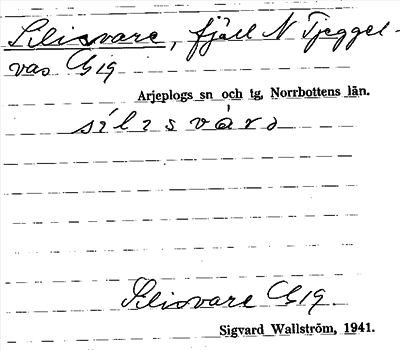 Silisvare, fjäll N Tjeggel-
vas G19
Arjeplogs sn och tg, Norrbottens län.
sílisvárɔ
Silisvare G19.
Sigvard Wallström, 1941.